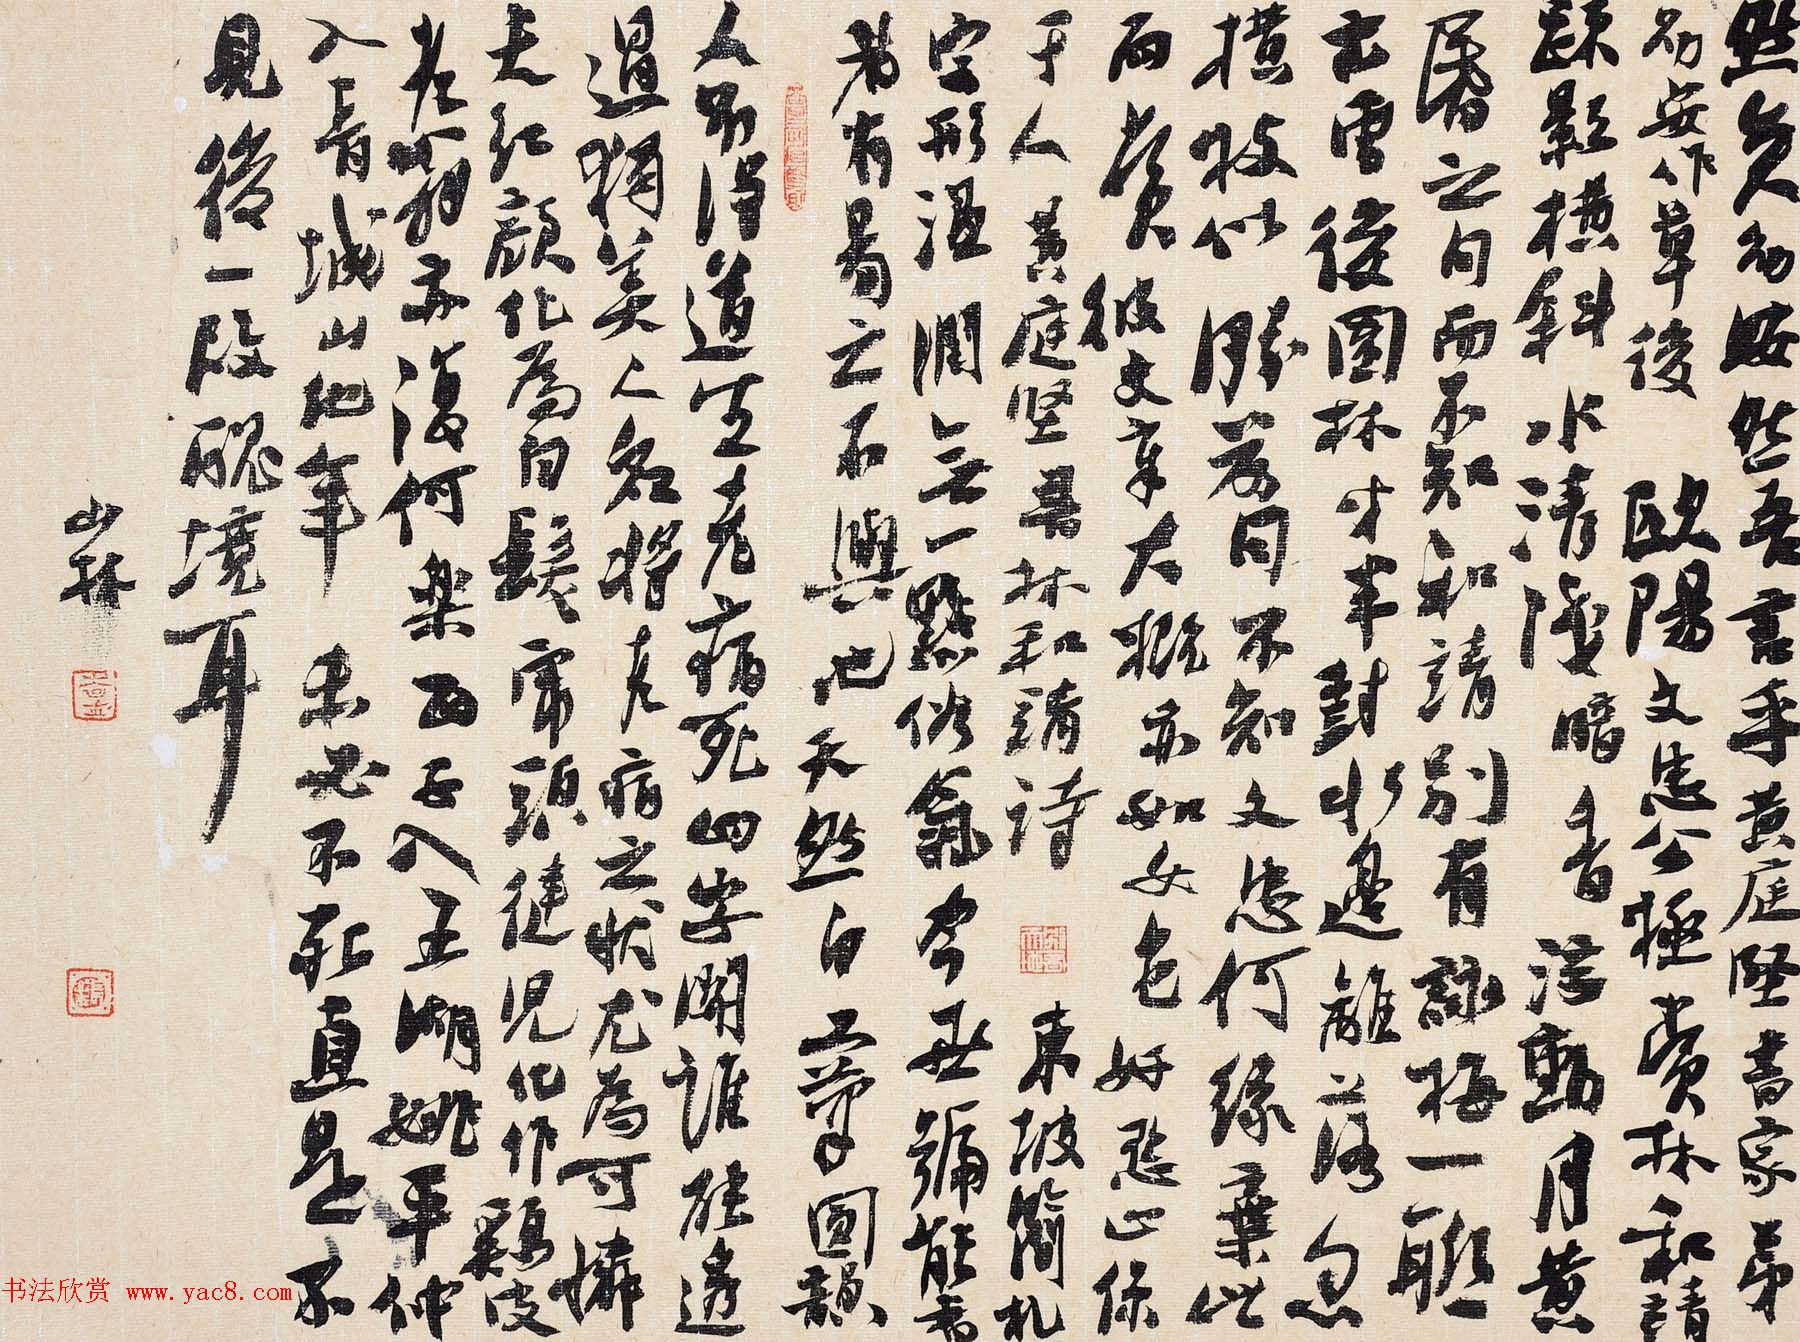 然矣勿晦然吾書乎黃庭堅書家弟
幼安作草後 歐陽文忠公極賞林和靖
疎影橫斜水清淺暗香浮動月黃
昏之句而不知和靖別有詠梅一聯
云雪後園林才半對水邊籬落忽
橫枝似勝前句不知文忠何緣棄此
而賞彼文章大概亦如女色好惡止係
于人黃庭堅書林和靖詩 東坡簡札
字形溫潤無一點俗氣今世號能書
者有易之不與也天然自工筆圓韻
人不得道生老病死四字關誰能透
過獨美人名將老病之狀尤為可憐
夫紅顏化為白髮虎頭健兒化作雞皮
老翁亦復何樂西子入五湖姚平仲
入青城山他年未必不死直是不
見後一段醜境耳
山林
书法欣赏 www.yac8.com